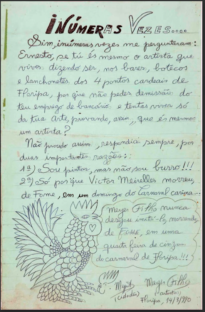 INÚMERAS VEZES....
Sim, inúmeras vezes me perguntaram:
Ernesto, se tú és mesmo o artista que
vive dizendo ser, nos bares, botecos
e lanchonetes dos 4 pontos cardeais de
Floripa, por que não pedes demissão do
teu emprego de bancário e tentas viver só
de tua Arte, provando, assim, que és mesmo
um artista?
Não perdo assim, respondia sempre, por
duas importantes razões:
1ª) Sou pintor, mas não sou burro!!!
2ª) Só porque Victor Meirelles morreu
de Fome, em um domingo do Carnaval carioca
Meyer Filho nunca
de Fome, em uma
quarta feira de cinzas
do carnaval de Floripa!!!
Meyer Filho
Floripa,